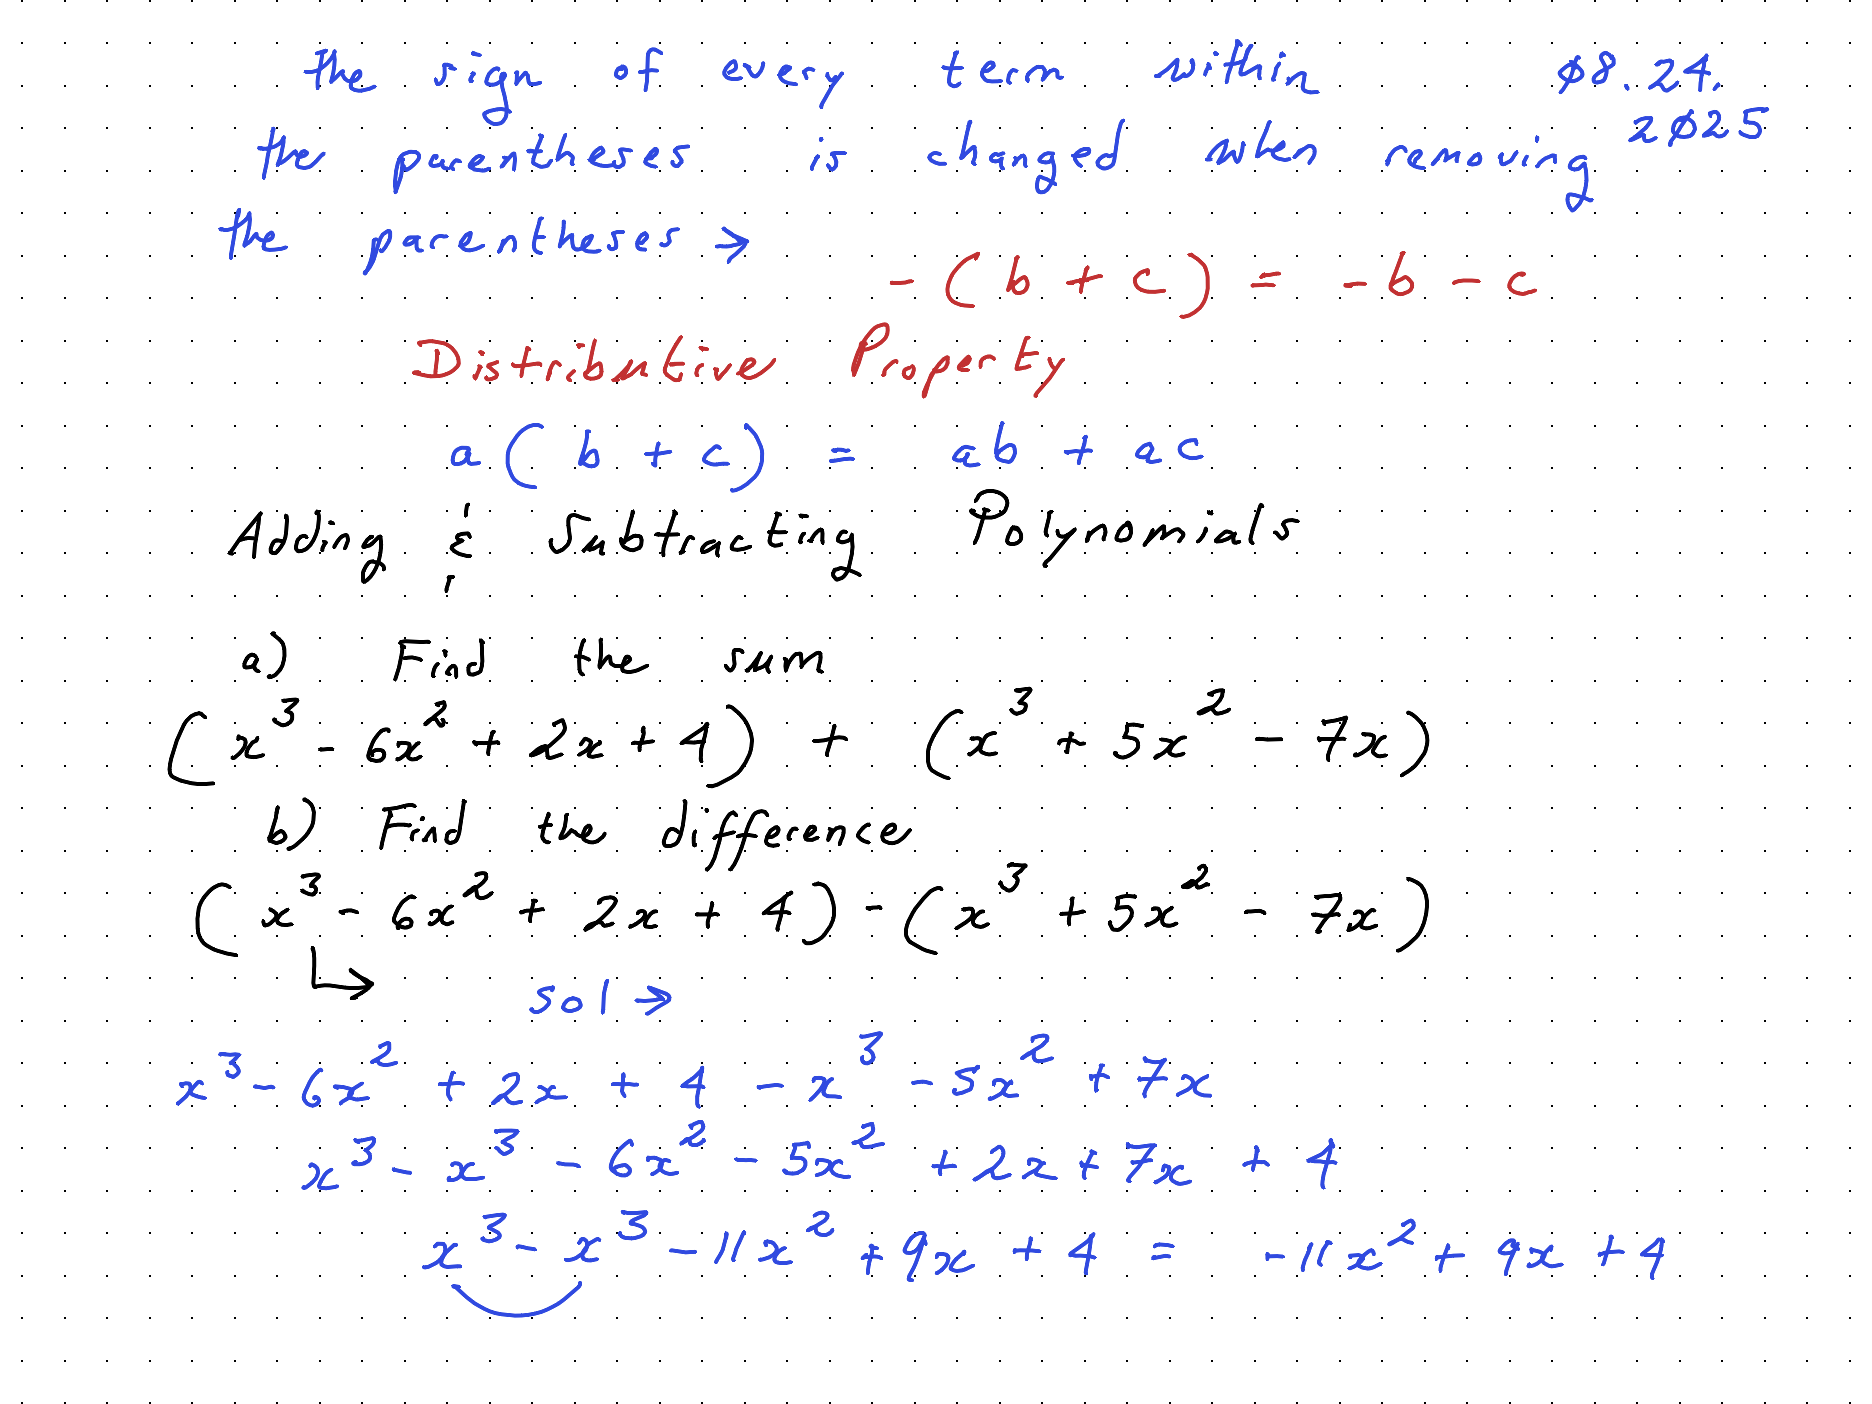 the sign of every term within ø8.24.
2ø25
the parentheses is changed when removing
the parentheses →
- ( b + c ) = - b - c
Distributive Property
a ( b + c ) = ab + ac
Adding & Subtracting Polynomials
a) Find the sum
(x³ - 6x² + 2x + 4) + (x³ + 5x² - 7x)
b) Find the difference
(x³ - 6x² + 2x + 4) - (x³ + 5x² - 7x)
↳ sol →
x³ - 6x² + 2x + 4 - x³ - 5x² + 7x
x³ - x³ - 6x² - 5x² + 2x + 7x + 4
x³ - x³ - 11x² + 9x + 4 = -11x² + 9x + 4